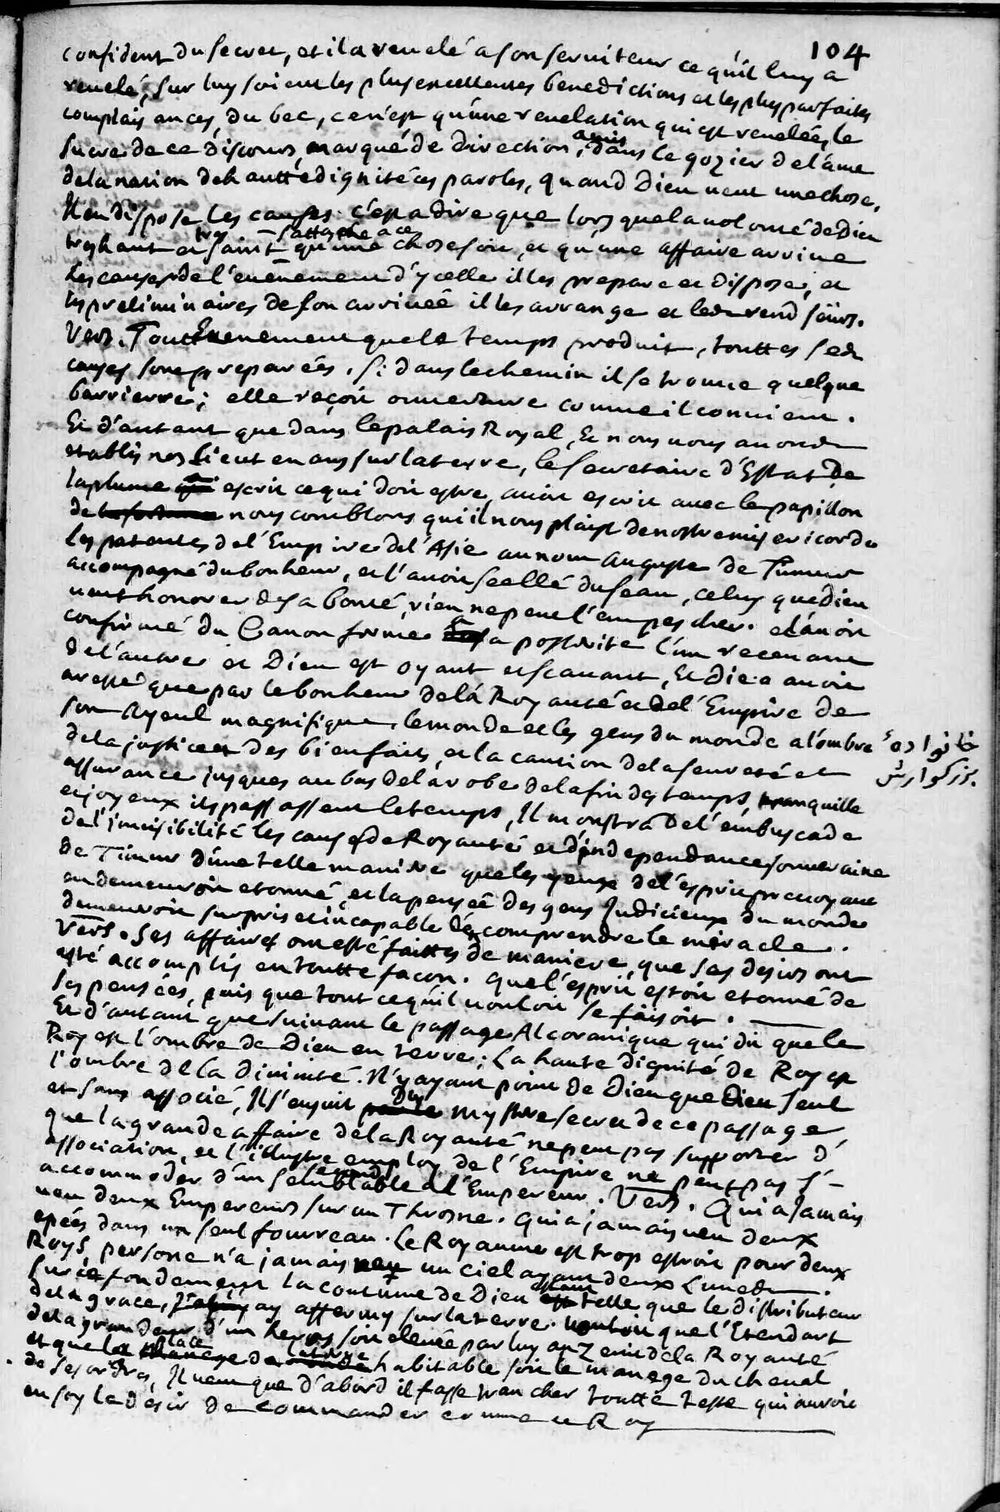 104
confident du secret, et il a reuelé a son seruiteur ce qu'il luy a
reuelé, sur luy soient les plus excellentes benedictions et les plus parfaites
complaisances, du bec, ce n'est qu'une reuelation qui est reuelée, le
sucre de ce discours, marqué de direction, a mis dans le gozier de l'ame
de la nation de hautte dignité ces paroles, quand Dieu veut une chose,
Il en dispose les causes. c'est a dire que lors que la volonté de Dieu
tres haut et tres saint s'attache a ce qu'une chose soit, et qu'une affaire arriue
les causes de l'euenement d'ycelle il les prepare et dispose, et
les preliminaires de son arriueé il les arrange et les rend seürs.
Vers. Tout Euenement que le temps produit, touttes ses
causes sont preparées. si dans le chemin il se trouue quelque
barrierre; elle reçoit ouuerture comme il conuient.
Et d'autant que dans le palais Royal, Et nous vous auons
establis nos lieutenans sur la terre, le secretaire d'Estat de
la plume escrit ce qui doit estre, auoit escrit auec le papillon
de nous comblons qui il nous plaist de nostre misericorde
les patentes de l'Empire de l'Asie au nom auguste de Timur
accompagné du bonheur, et l'auoit seellé du seau, celuy que Dieu
veut honorer de sa bonté, rien ne peut l'empescher. et l'auoit
confirmé du Canon formé sa posterité l'un receuant
de l'autre et Dieu est oyant et scauant, Et Dieu auoit
aresté que par le bonheur de la Royauté et de l'Empire de
son Ayeul magnifique, le monde et les gens du monde a l'ombre
خانواده
بزرگوارش
de la justice et des bienfaits, et la caution de la seureté et
assurance jusques au bas de la robe de la fin des temps, tranquille
et joyeux ils passassent le temps, Il monstra de l'embuscade
de l'inuisibilité les causes de Royauté et d'independance souueraine
de Timur d'une telle maniere que les yeux de l'esprit preuoyant
en demeuroit etonné, et la pensée des gens Judicieux du monde
demeuroit surpris et incapable de comprendre le miracle.
Vers. Ses affaires ont esté faittes de maniere, que ses desirs ont
esté accomplis en toutte facon. que l'esprit estoit etonné de
ses pensées, puis que tout ce qu'il vouloit se faisoit.
Et d'autant que suiuant le passage Alcoranique qui dit que le
Roy est l'ombre de Dieu en terre; La haute dignité de Roy est
l'ombre de la Diuinité. N'y ayant point de Dieu que Dieu seul
et sans associé, Il s'ensuit du mystere secret de ce passage
que la grande affaire de la Royauté ne peut pas supporter d'
association, et l'illustre employ de l'Empire ne peut pas s'-
accommoder d'un second semblable a l'Empereur. Vers. Qui a Jamais
veu deux Empereurs sur un Throsne. qui a jamais veu deux
epées dans un seul fourreau. Le Royaume est trop estroit pour deux
Roys, persone n'a jamais veu un ciel ayant deux Lunes.
Sur ce fondement la coutume de Dieu estant telle que le distributeur
de la grace, ay affermy sur la terre. vouloit que l'Etendart
de la grandeur d'un heros soit eleuée par luy au Zenit de la Royauté
et que la place de la terre habitable soit le manege du cheual
de ses ordres, Il veut que d'abord il fasse trancher toutte teste qui auroit
en soy le desir de commander comme ce Roy